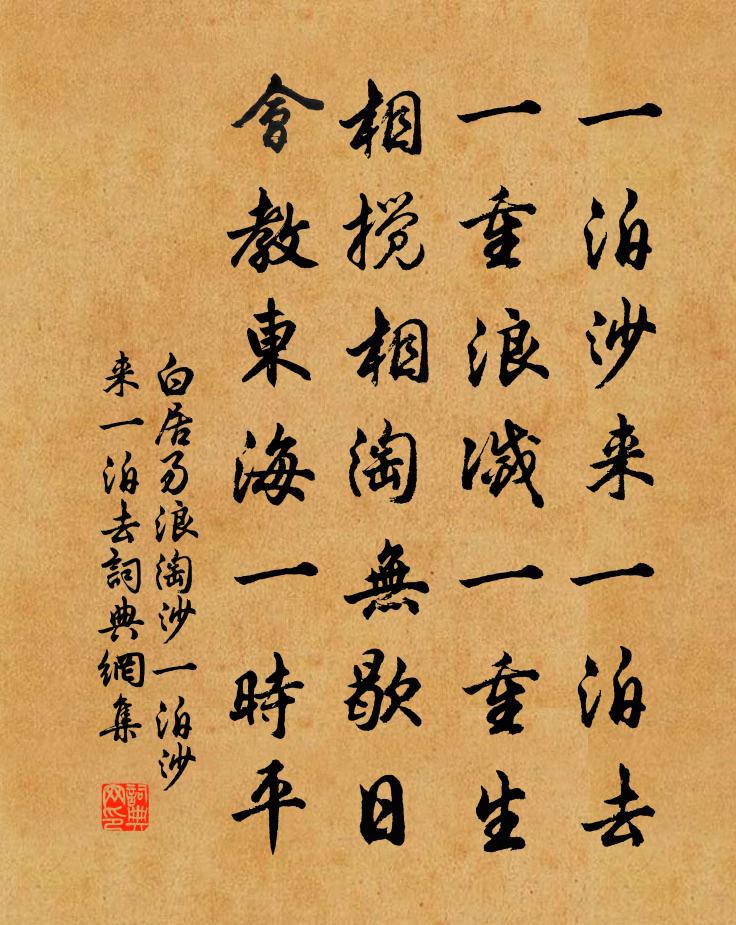 一泊沙来一泊去
一重浪滅一重生
相搅相淘無歇日
會教東海一時平
白居易浪淘沙一泊沙
来一泊去詞典網集
詞典
网印